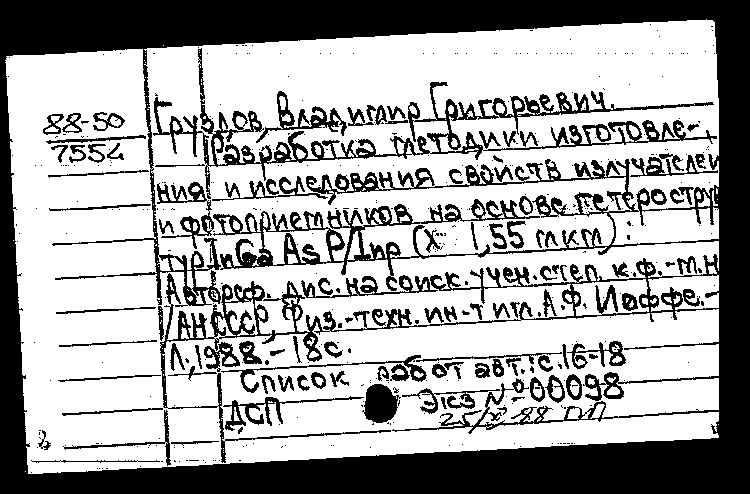 88-50
7554
Грузлов, Владимир Григорьевич.
Разработка методики изготовле-
ния и исследования свойств излучателей
и фотоприемников на основе гетерострук
тур InGa As P/Inp (x 1,55 мкм) :
Автореф. дис. на соиск. учен. степ. к.ф.-м.н
/АН СССР, Физ.-техн. ин-т им. А.Ф. Иоффе.-
Л., 1988.- 18 с.
Список работ авт.: с.16-18
ДСП Экз № 00098
25/XI-88